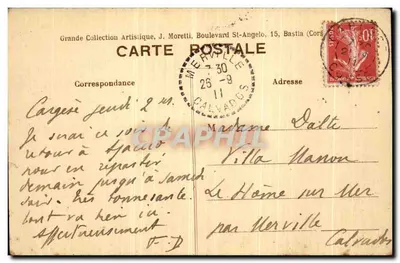 Grande Collection Artistique, J. Moretti, Boulevard St-Angelo, 15, Bastia (Cor
CARTE POSTALE
Correspondance
Adresse
MERVILLE
30
26 -9
11
CALVADOS
10
Cargèse jeudi 2
Je serai ce soir de
retour à Ajaccio
pour en repartir
demain jusqu'à samedi
soir. Très bonne santé.
tout va bien ici
affectueusement
F. D
Madame Dalte
Villa Manon
Le Hôme sur Mer
par Merville
Calvados
Delcampe